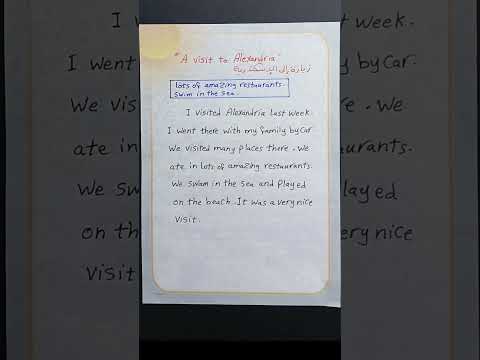 "A visit to Alexandria"
زيارة إلى الإسكندرية
lots of amazing restaurants.
swim in the sea.
I visited Alexandria last week.
I went there with my family by car
We visited many places there. We
ate in lots of amazing restaurants.
We swam in the sea and played
on the beach. It was a very nice
visit.